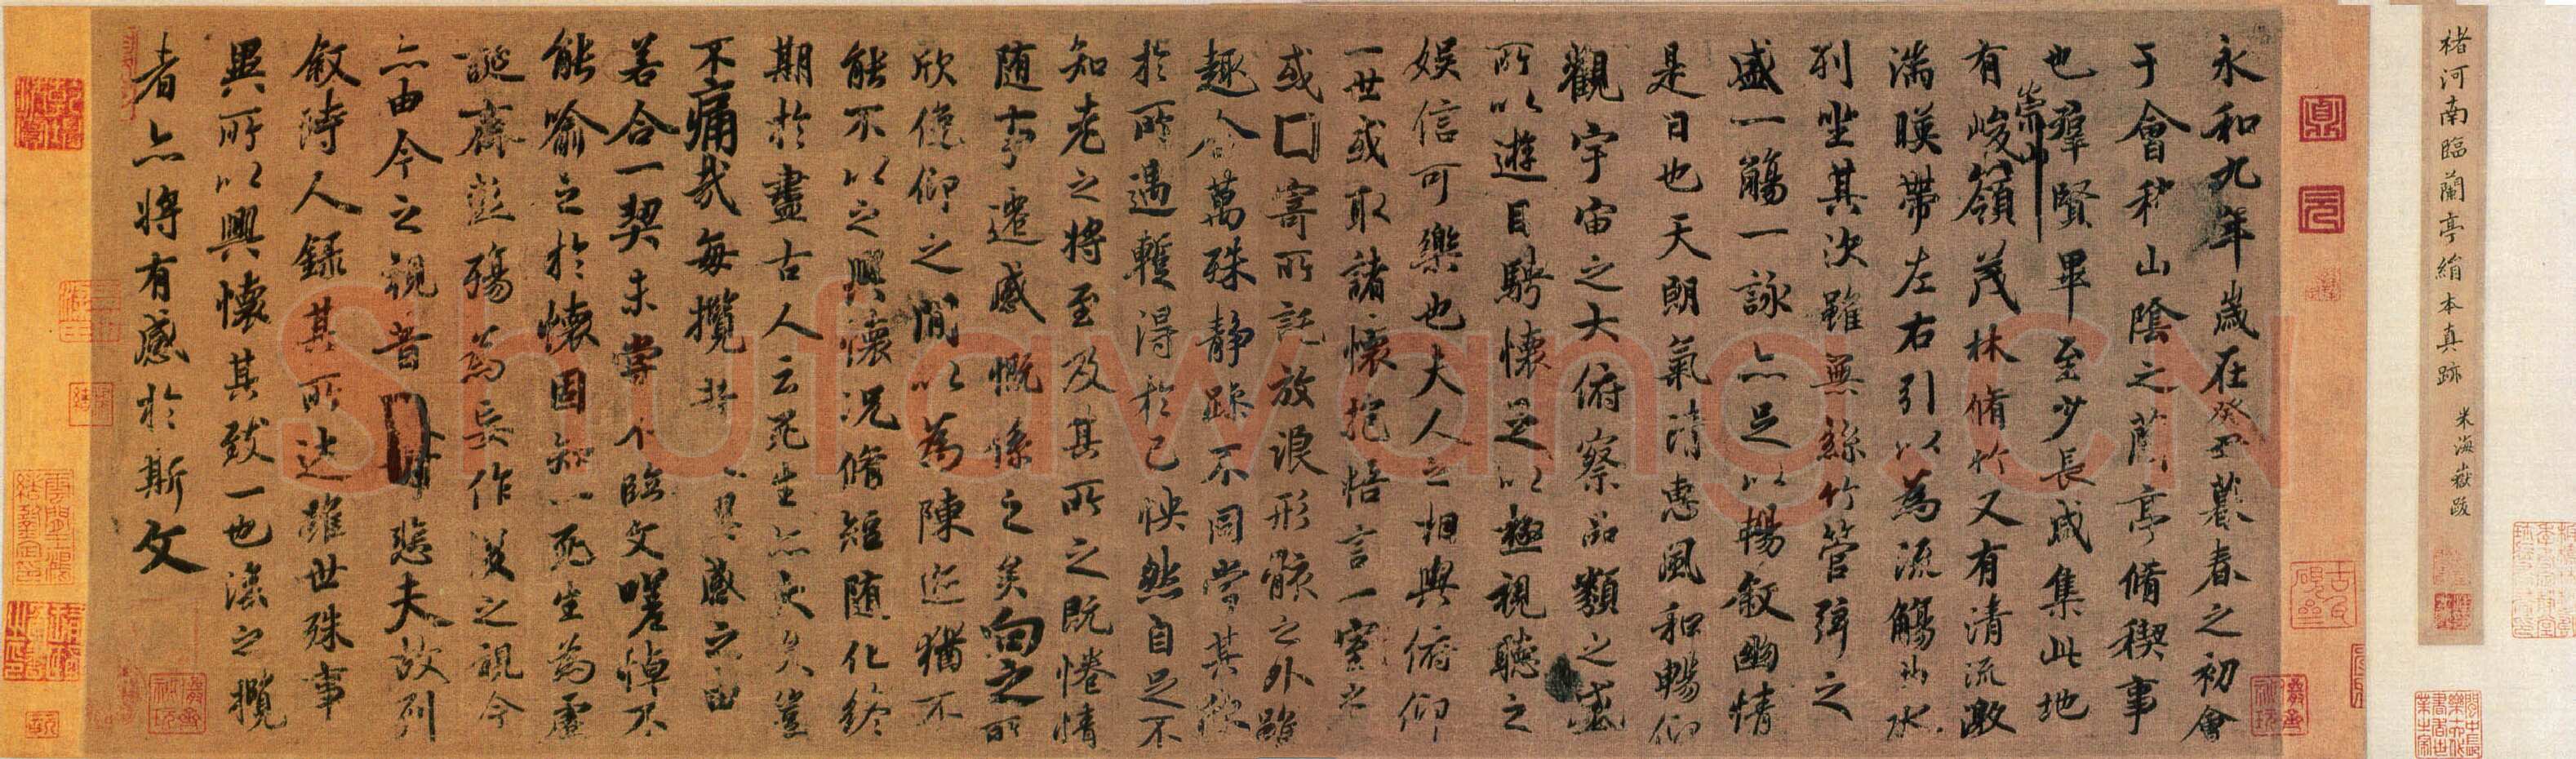 褚河南臨蘭亭絹本真跡
米海嶽跋
永和九年歲在癸丑暮春之初會
于會稽山陰之蘭亭脩稧事
也羣賢畢至少長咸集此地
有崇山峻領茂林脩竹又有清流激
湍暎帶左右引以為流觴曲水
列坐其次雖無絲竹管弦之
盛一觴一詠亦足以暢敘幽情
是日也天朗氣清惠風和暢仰
觀宇宙之大俯察品類之盛
所以遊目騁懷足以極視聽之
娛信可樂也夫人之相與俯仰
一世或取諸懷抱悟言一室之
或寄所託放浪形骸之外雖
趣舍萬殊靜躁不同當其欣
於所遇暫得於己怏然自足不
知老之將至及其所之既惓情
隨事遷感慨係之矣向之所
欣俛仰之閒以為陳迹猶不
能不以之興懷況脩短隨化終
期於盡古人云死生亦大矣豈
不痛哉每攬昔人興感之由
若合一契未嘗不臨文嗟悼不
能喻之於懷固知一死生為虛
誕齊彭殤為妄作後之視今
亦由今之視昔悲夫故列
敘時人錄其所述雖世殊事
異所以興懷其致一也後之攬
者亦將有感於斯文
Shufawang.CN